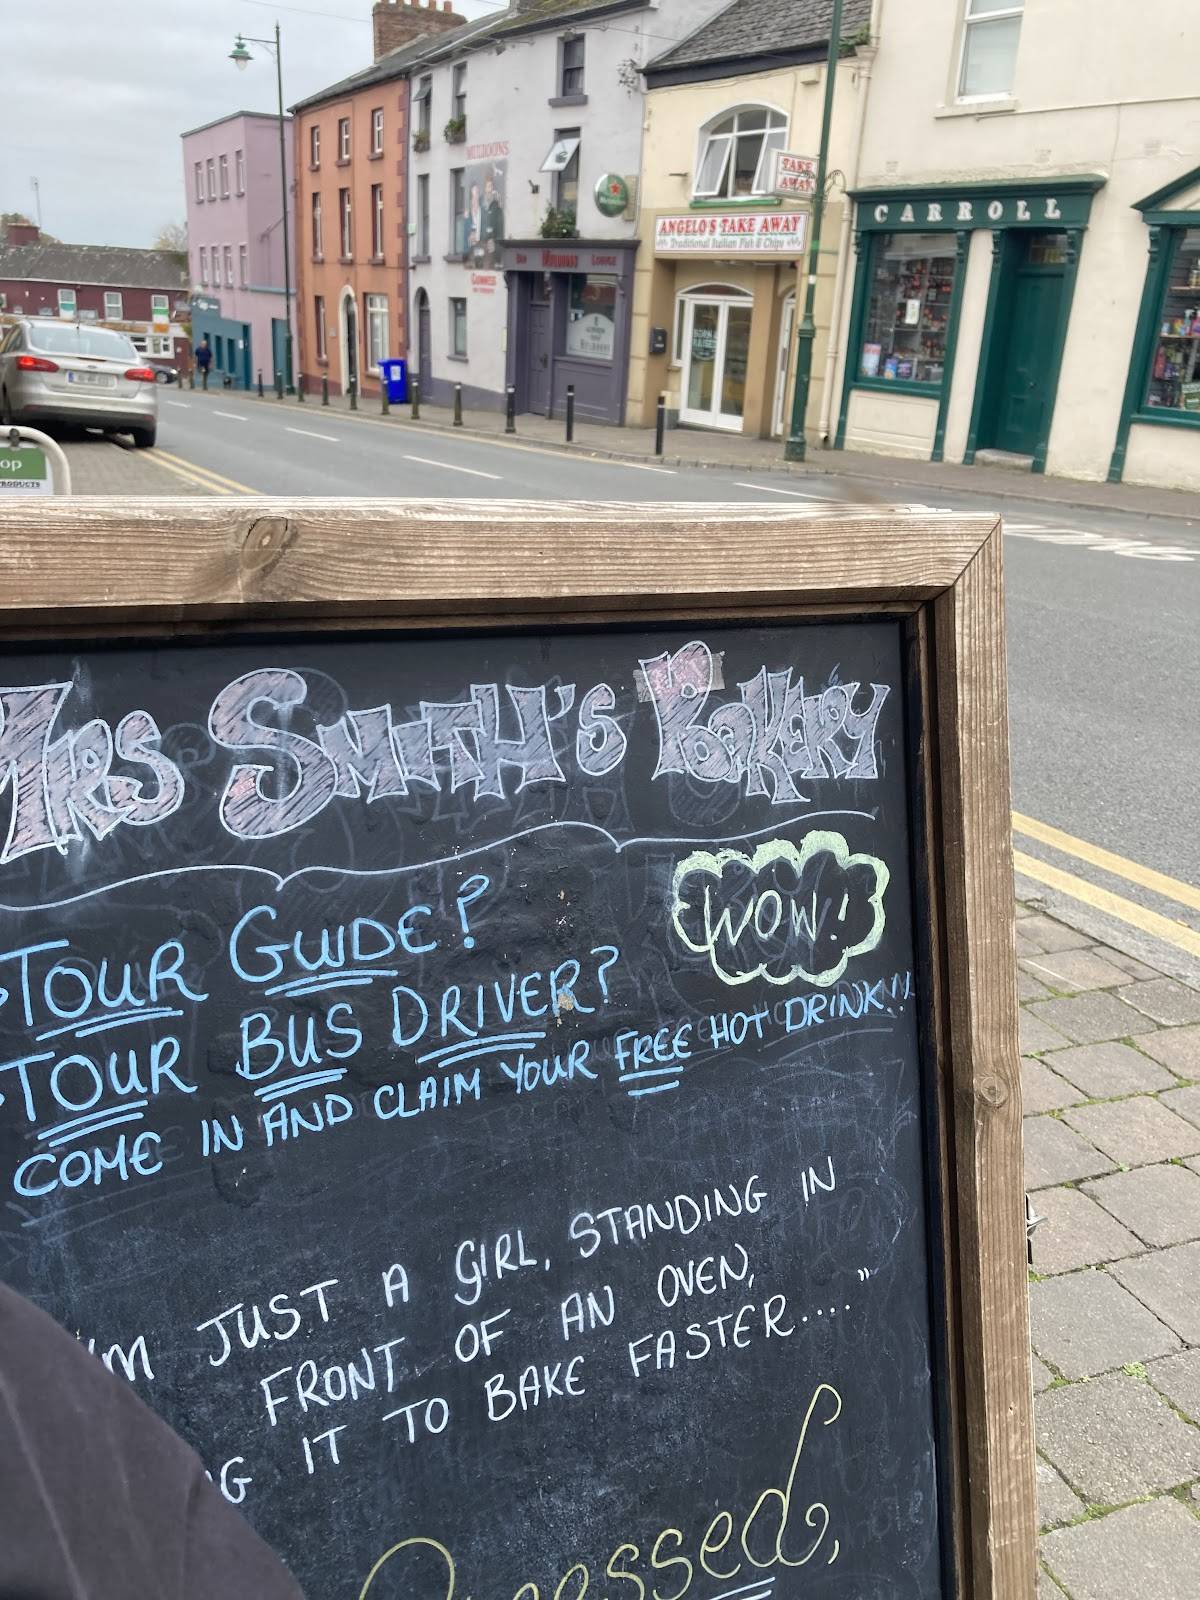 MULDOONS
GUINNESS
Heineken
BAR MULDOONS LOUNGE
TAKE
AWAY
ANGELO'S TAKE AWAY
Traditional Italian Fish & Chips
CARROLL
op
PRODUCTS
MRS SMITH'S BAKERY
TOUR GUIDE?
WOW!
TOUR BUS DRIVER?
COME IN AND CLAIM YOUR FREE HOT DRINK!!
I'M JUST A GIRL, STANDING IN
FRONT OF AN OVEN,
G IT TO BAKE FASTER...."
essed,